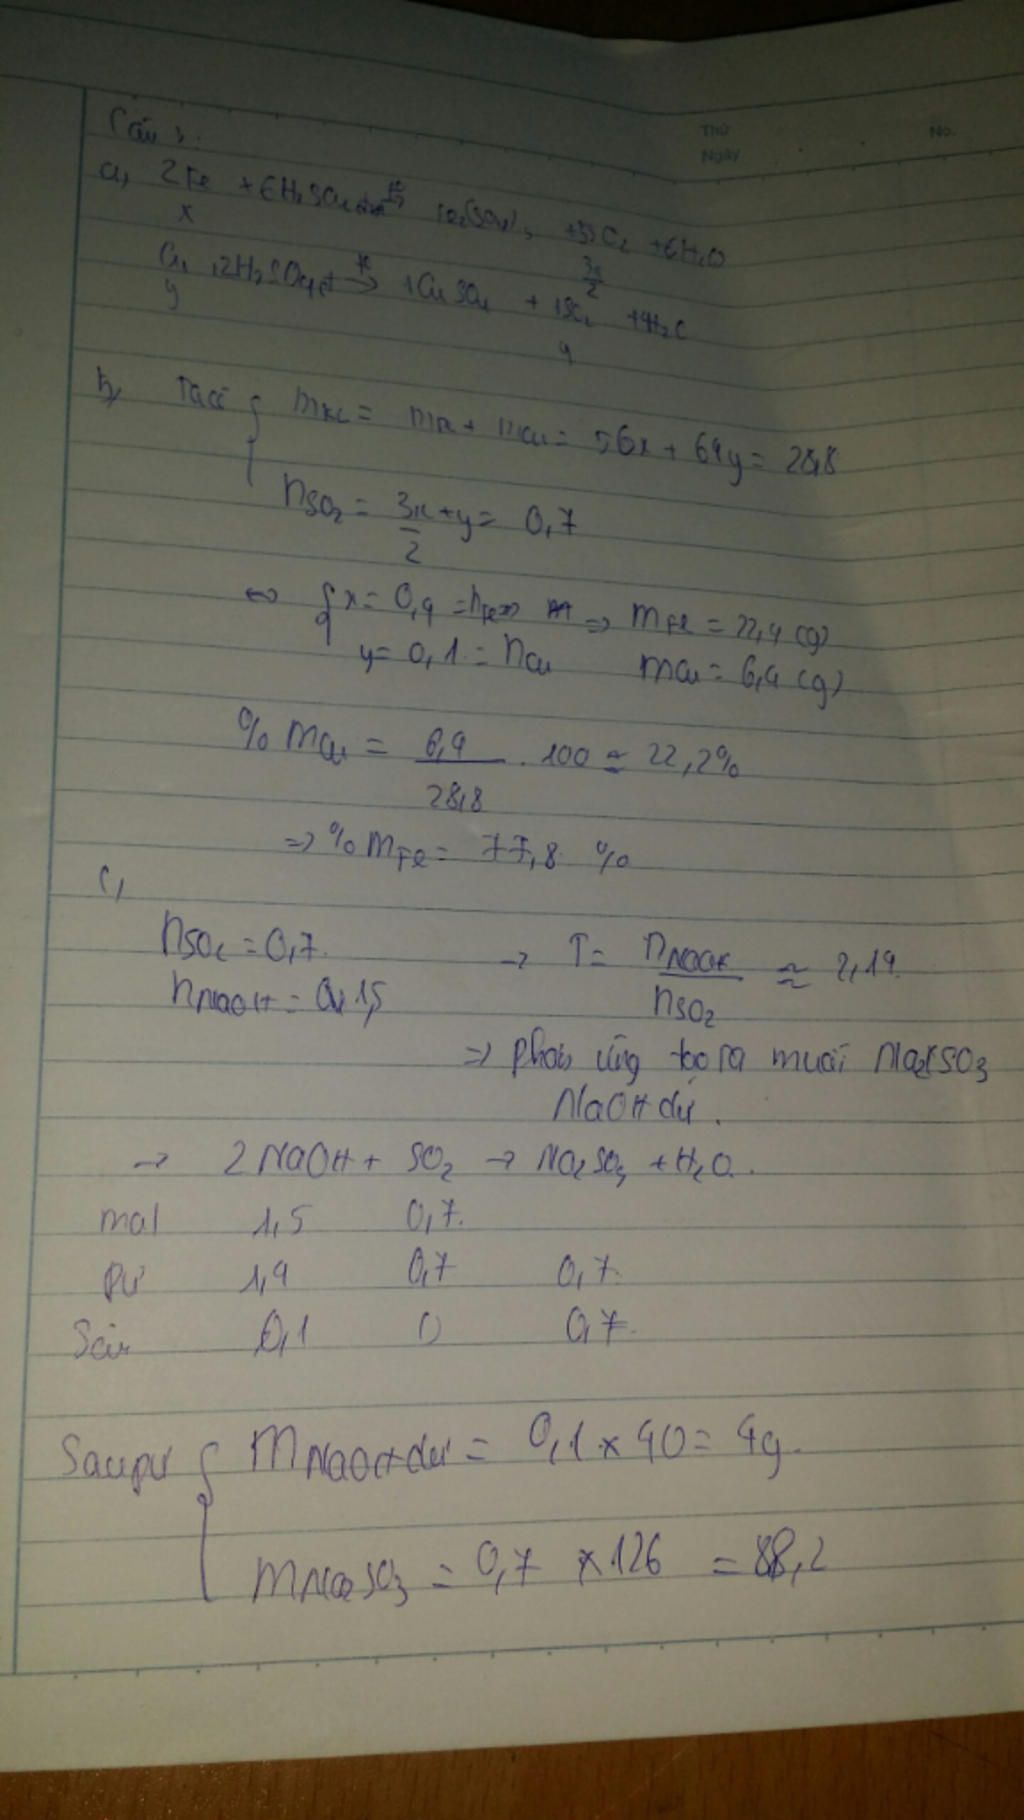 Câu 3:
Thứ
Ngày
No.
a, 2Fe + 6H₂SO₄ đặc →(t°) Fe₂(SO₄)₃ + 3SO₂ + 6H₂O
x 3x/2
Cu + 2H₂SO₄ →(t°) 1CuSO₄ + 1SO₂ + H₂O
y y
b, Ta có { mKL = mFe + mCu = 56x + 64y = 28,8
nSO₂ = 3x/2 + y = 0,7
⇔ { x = 0,4 = nFe ⇒ mFe = 22,4 (g)
y = 0,1 = nCu mCu = 6,4 (g)
% mCu = 6,4/28,8 . 100 ≈ 22,2%
⇒ % mFe = 77,8 %
c,
nSO₂ = 0,7. → T = nNaOH/nSO₂ ≈ 2,14
nNaOH = 1,5
⇒ phản ứng tạo ra muối Na₂SO₃
NaOH dư.
→ 2NaOH + SO₂ → Na₂SO₃ + H₂O.
mol 1,5 0,7.
pư 1,4 0,7 0,7.
Sau 0,1 0 0,7.
Sau pư { mNaOH dư = 0,1 × 40 = 4g.
mNa₂SO₃ = 0,7 × 126 = 88,2